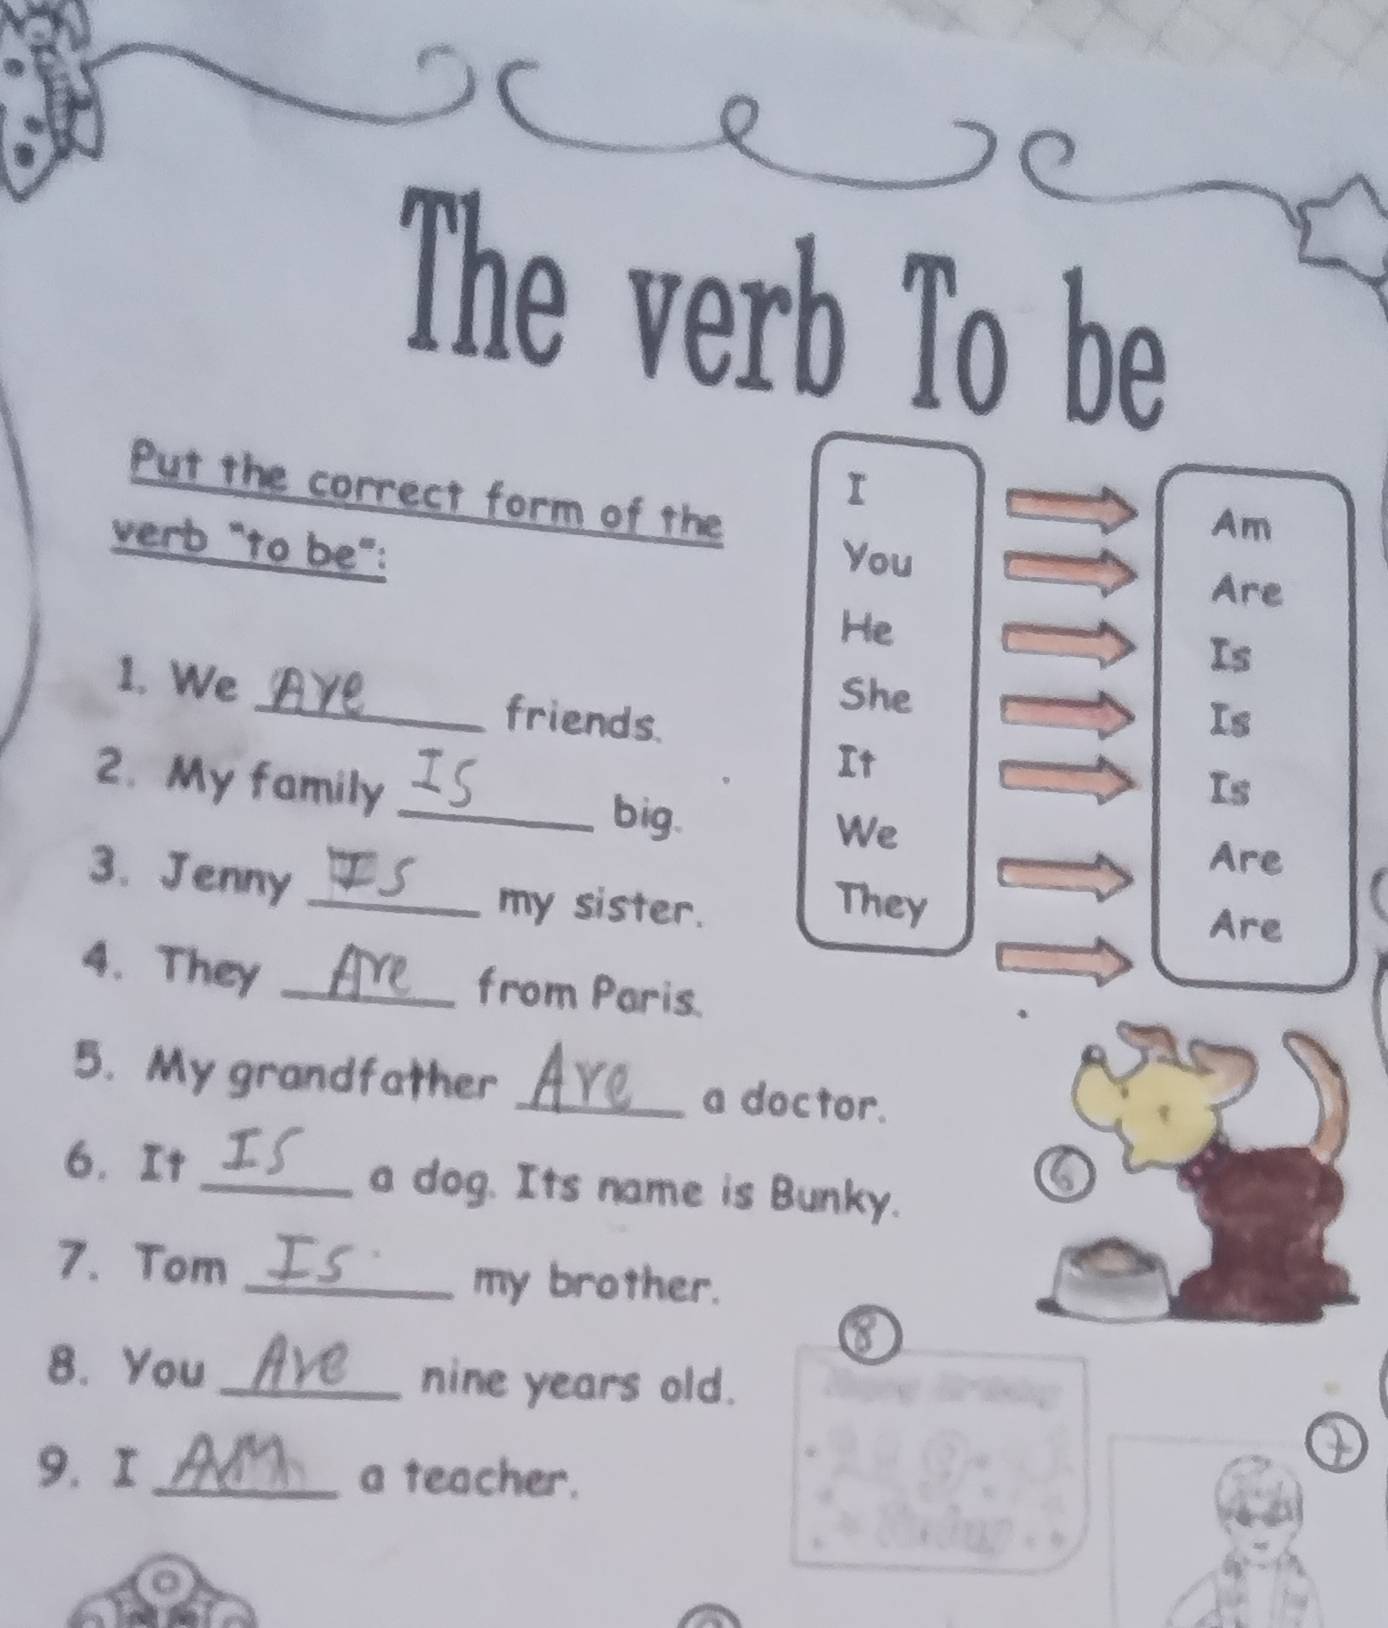 The verb To be
Put the correct form of the
verb "to be":
I Am
You Are
He Is
She Is
It Is
We Are
They Are
1. We Are friends.
2. My family Is big.
3. Jenny Is my sister.
4. They Are from Paris.
5. My grandfather Are a doctor.
6. It Is a dog. Its name is Bunky.
7. Tom Is my brother.
8. You Are nine years old.
9. I AM a teacher.
6
8
7